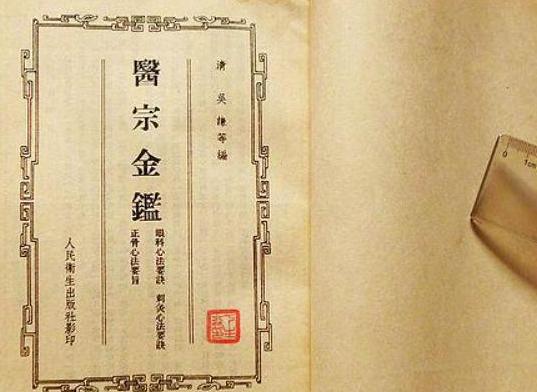 清 吳謙等編
醫宗金鑑
眼科心法要訣 刺灸心法要訣
正骨心法要旨
人民衛生出版社影印
0 1cm